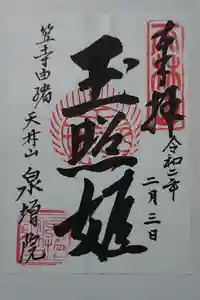 奉拝
令和二年
二月三日
玉照姫
笠寺由緒
天井山
泉増院